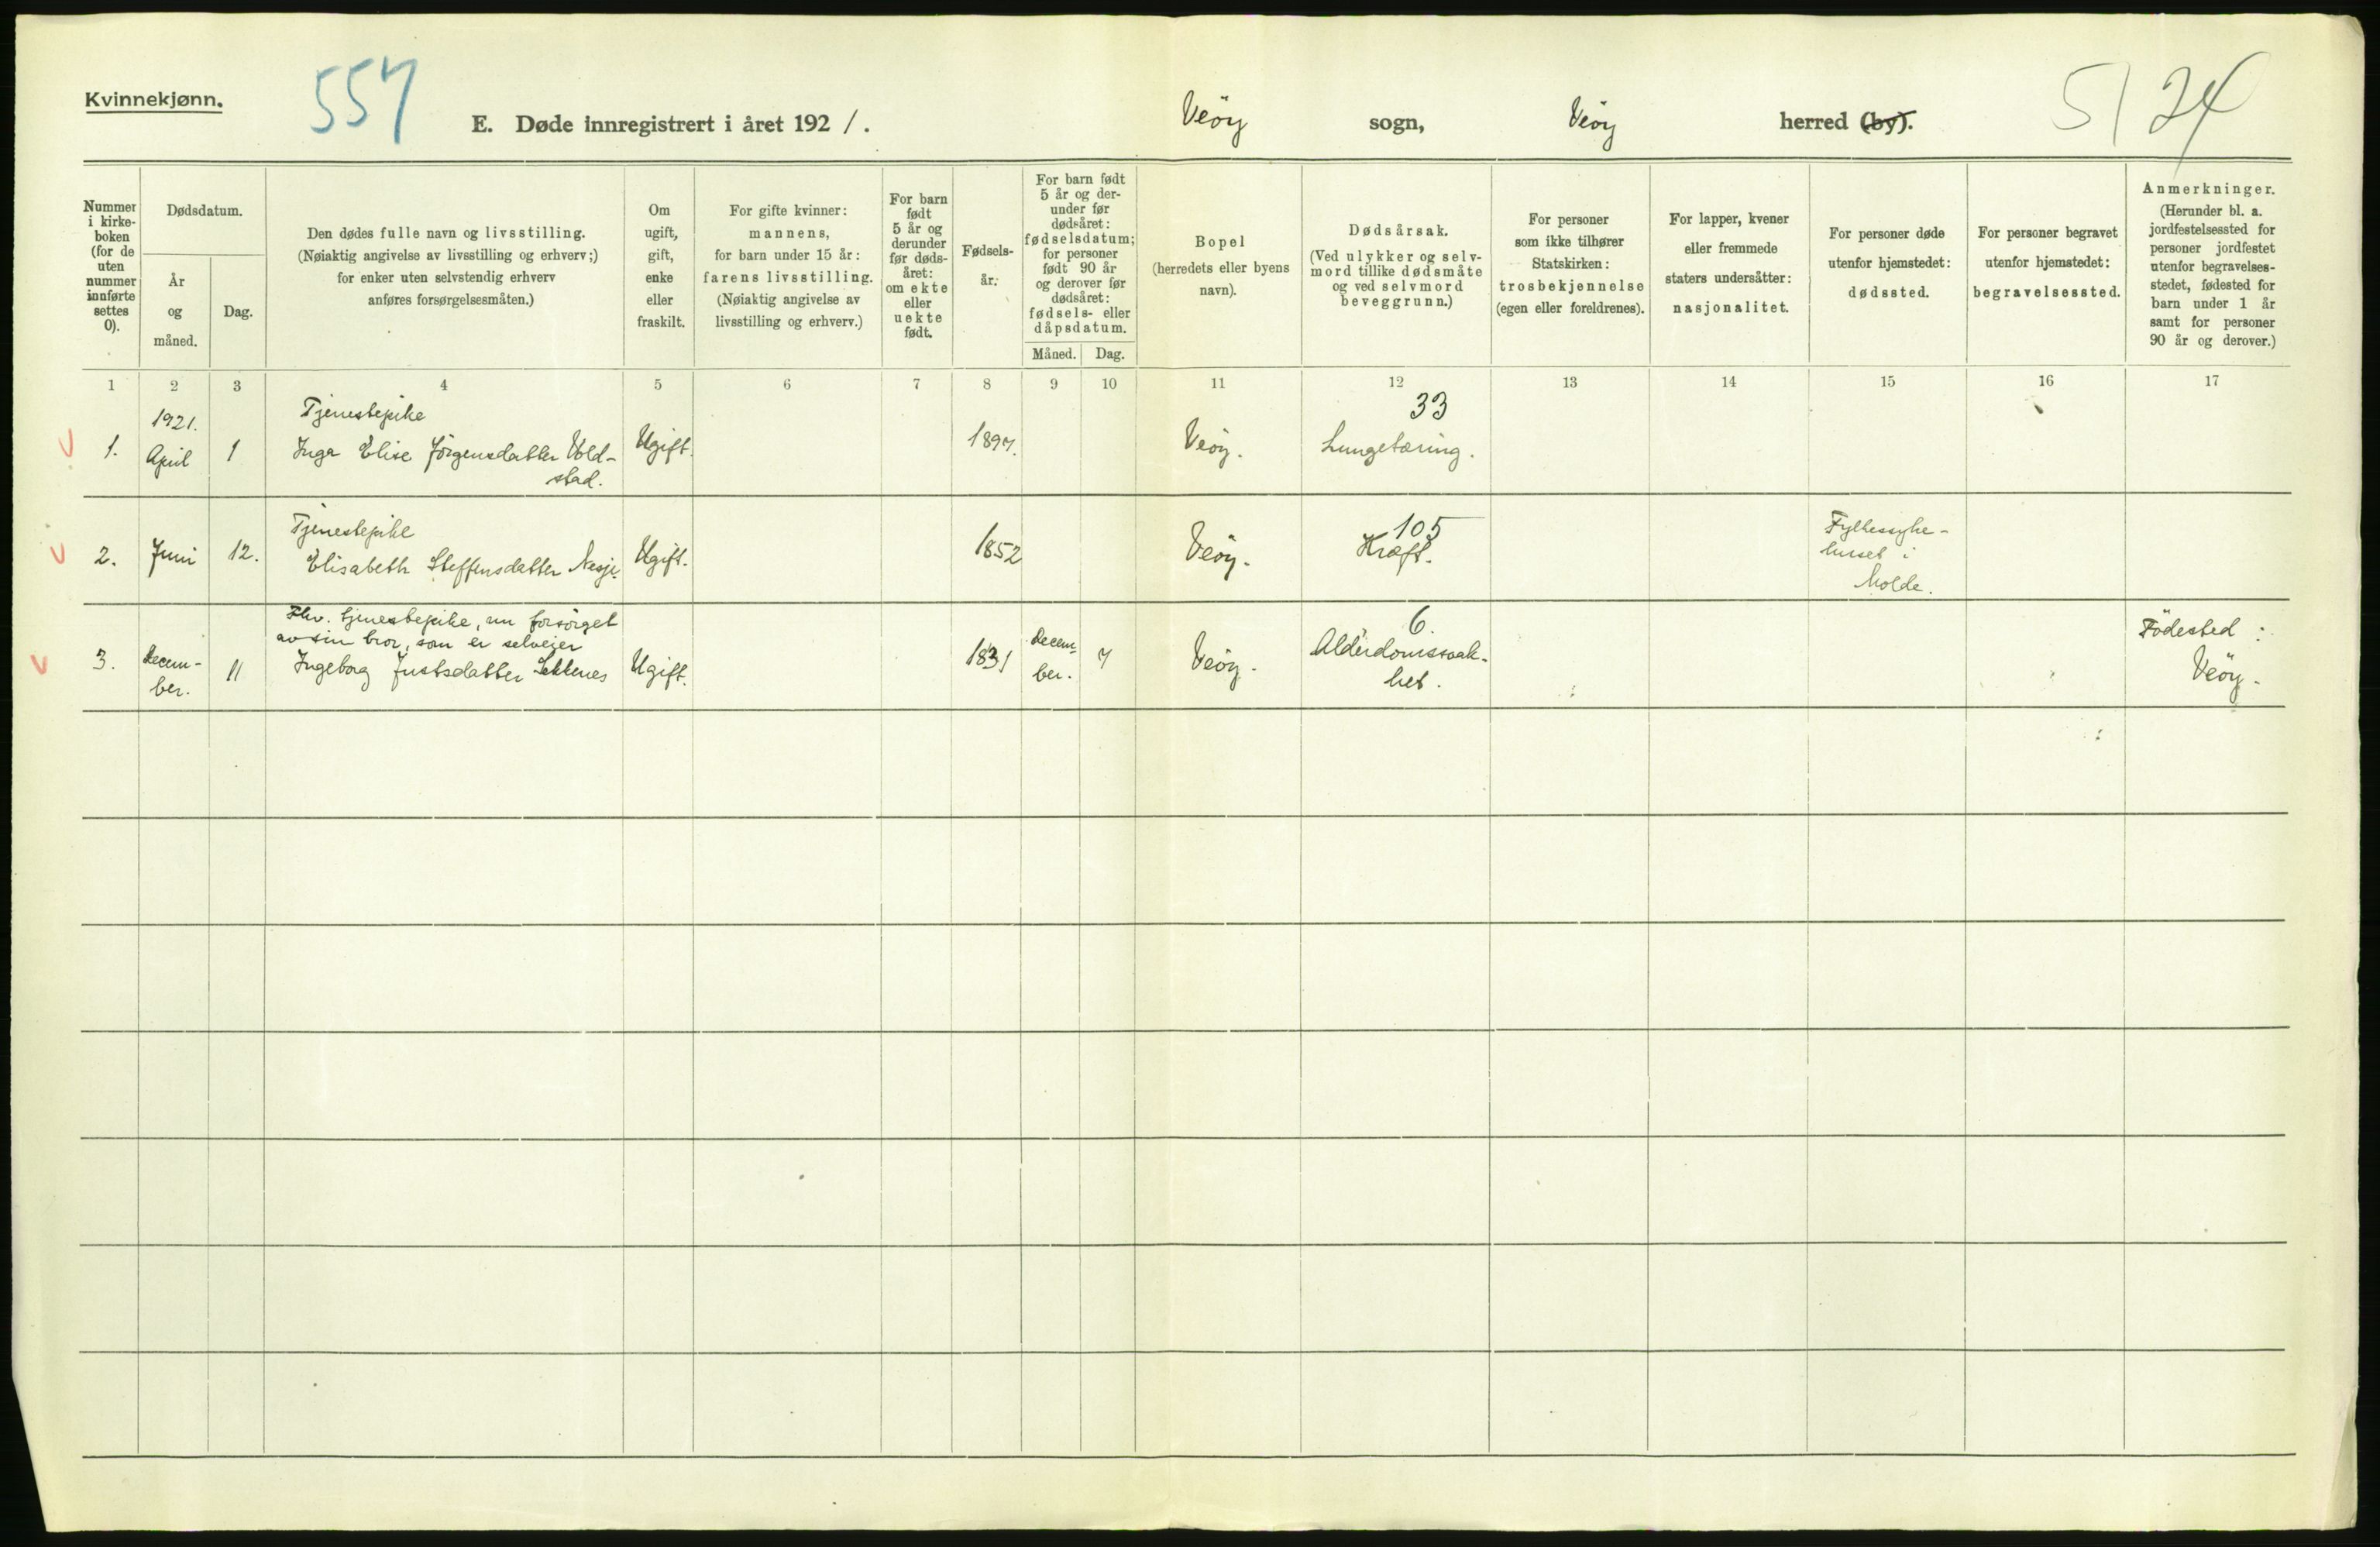 Kvinnekjønn.
557
E. Døde innregistrert i året 1921.
Veöy sogn, Veöy herred (by).
5/24
Nummer i kirke-boken (for de uten nummer innførte settes 0).
Dødsdatum.
År og måned.
Dag.
Den dødes fulle navn og livsstilling.
(Nøiaktig angivelse av livsstilling og erhverv;)
for enker uten selvstendig erhverv
anføres forsørgelsesmåten.)
Om ugift, gift, enke eller fraskilt.
For gifte kvinner:
mannens,
for barn under 15 år:
farens livsstilling.
(Nøiaktig angivelse av
livsstilling og erhverv.)
For barn født 5 år og derunder før døds-året: om ekte eller uekte født.
Fødsels-år.
For barn født 5 år og der-under før dødsåret: fødselsdatum; for personer født 90 år og derover før dødsåret: fødsels- eller dåpsdatum.
Måned.
Dag.
Bopel
(herredets eller byens
navn).
Dødsårsak.
(Ved ulykker og selv-
mord tillike dødsmåte
og ved selvmord
beveggrunn.)
For personer
som ikke tilhører
Statskirken:
trosbekjennelse
(egen eller foreldrenes).
For lapper, kvener
eller fremmede
staters undersåtter:
nasjonalitet.
For personer døde
utenfor hjemstedet:
dødssted.
For personer begravet
utenfor hjemstedet:
begravelsessted.
Anmerkninger.
(Herunder bl. a.
jordfestelsessted for
personer jordfestet
utenfor begravelses-
stedet, fødested for
barn under 1 år
samt for personer
90 år og derover.)
1 2 3 4 5 6 7 8 9 10 11 12 13 14 15 16 17
1. 1921. April 1
Tjenestepike
Inga Elise Jörgensdatter Vold-
stad.
Ugift. 1897. Veöy.
33
Lungetæring.
2. Juni 12.
Tjenestepike
Elisabeth Steffensdatter Nesje.
Ugift. 1852 Veöy.
105
Kræft.
Fylkessyke-
huset i
Molde.
3. Decem-
ber. 11
Fhv. tjenestepike, nu forsörget
av sin bror, som er selveier
Ingeborg Justsdatter Sekkenes
Ugift. 1831
Decem-
ber. 7
Veöy.
6.
Alderdomssvak-
het.
Födested:
Veöy.